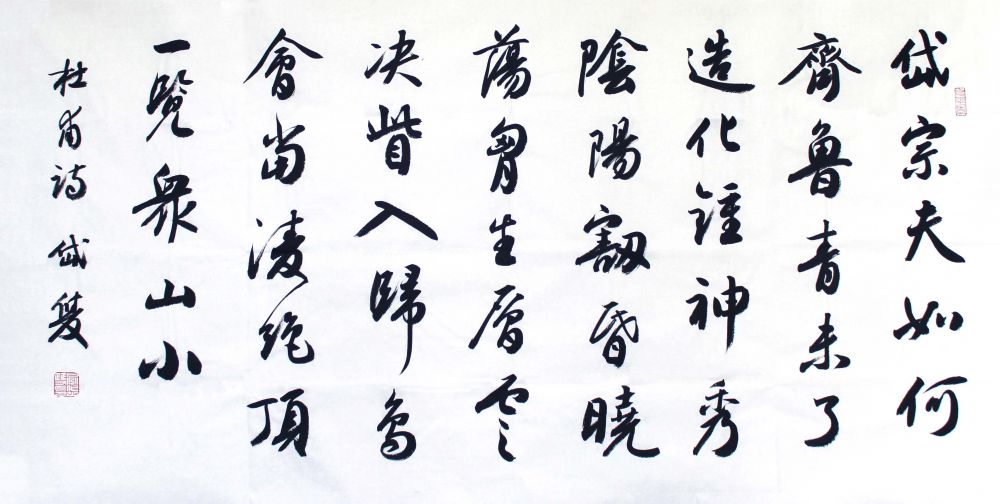 岱宗夫如何
齊魯青未了
造化鍾神秀
陰陽割昏曉
蕩胷生層雲
决眥入歸鳥
會當凌絕頂
一覽衆山小
杜甫詩 岱